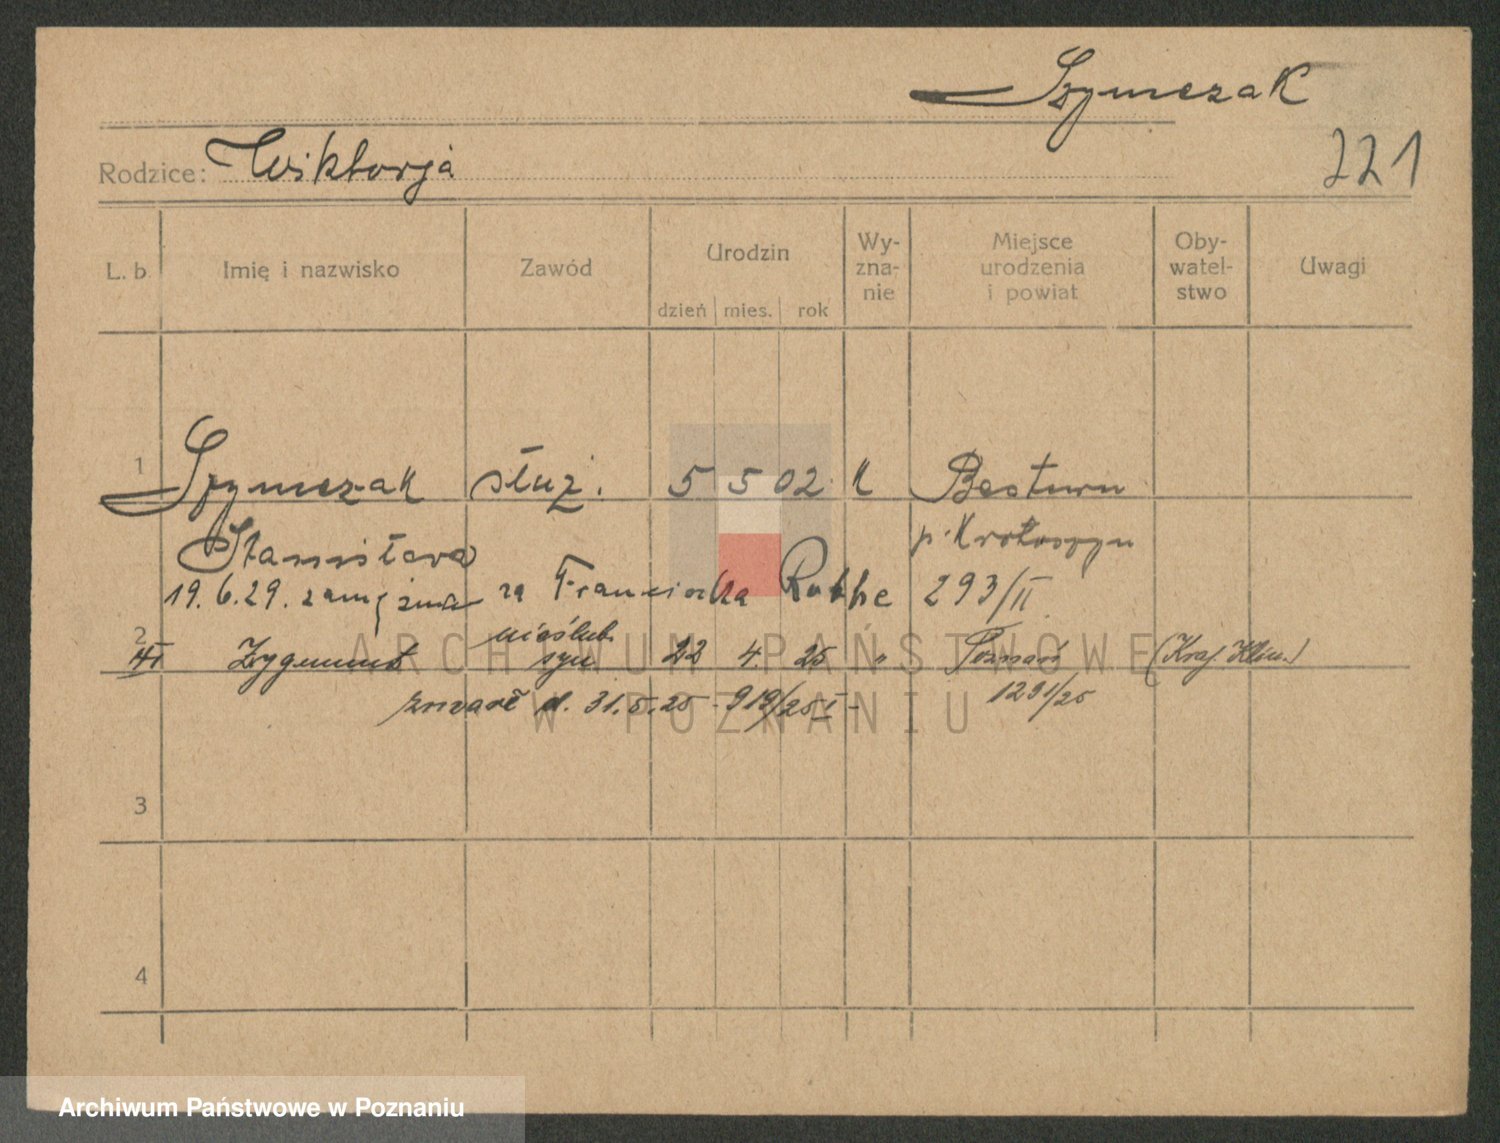 Szymczak
Rodzice: Wiktorja
221
L. b. Imię i nazwisko Zawód Urodzin dzień mies. rok Wy-zna-nie Miejsce urodzenia i powiat Oby-watel-stwo Uwagi
1 Szymczak służ. 5 5 02 K
Stanisława p. Krotoszyn
19.6.29. zamężna za Franciszka Rothe 293/II
nieślub.
2 Zygmunt syn 22 4 25 " Poznań
zmarł d. 31.5.25 - 919/25 I - 1291/25
3
4
ARCHIWUM PAŃSTWOWE
W POZNANIU
Archiwum Państwowe w Poznaniu